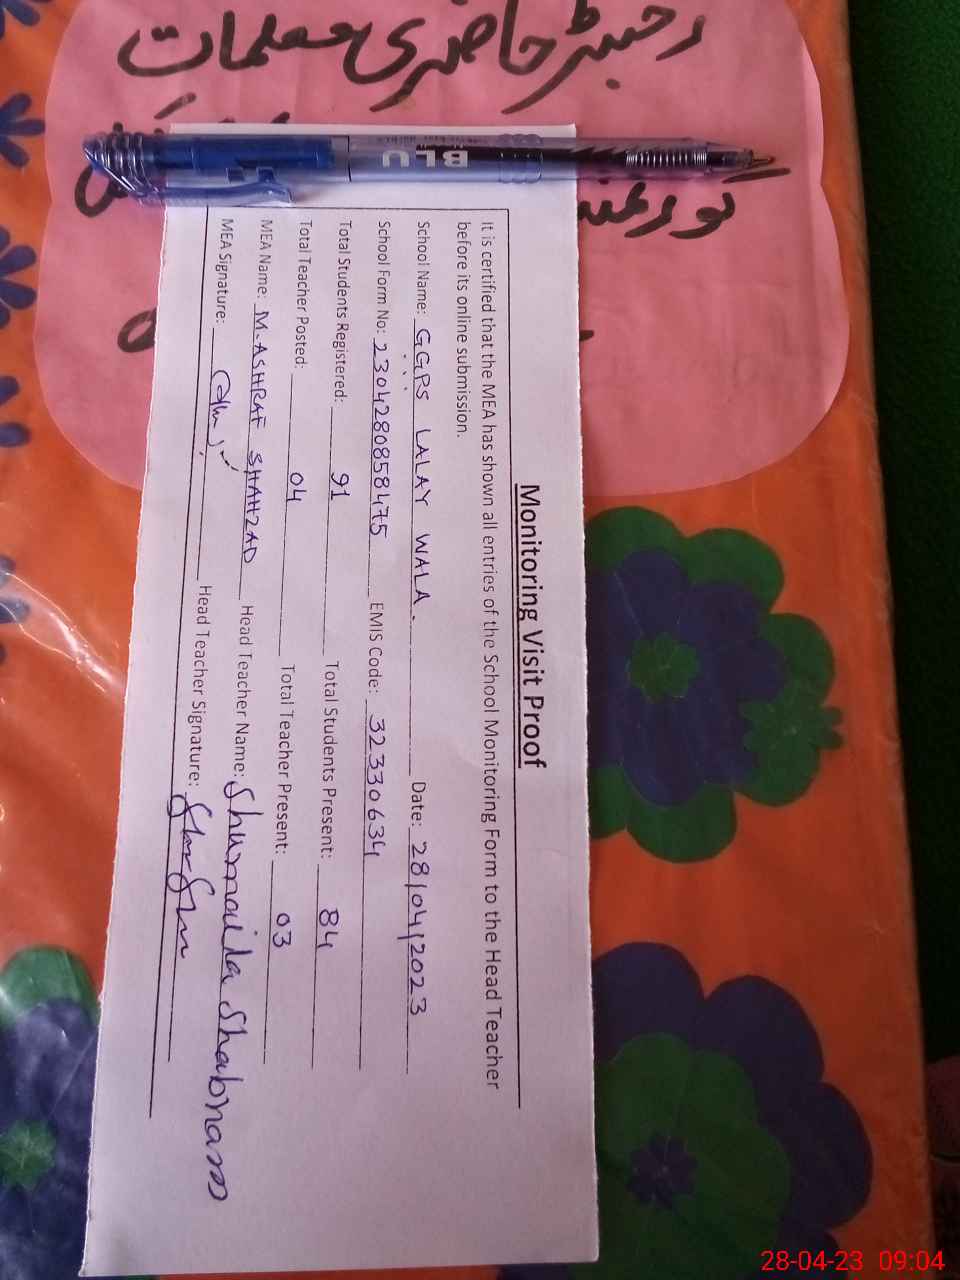 رجسٹر حاضری معلمات
BLU
Monitoring Visit Proof
It is certified that the MEA has shown all entries of the School Monitoring Form to the Head Teacher
before its online submission.
School Name: GGPS LALAY WALA. Date: 28/04/2023
School Form No: 2304280858475 EMIS Code: 32330634
Total Students Registered: 91 Total Students Present: 84
Total Teacher Posted: 04 Total Teacher Present: 03
MEA Name: M. ASHRAF SHAHZAD Head Teacher Name: Shumaila Shabnam
MEA Signature: Head Teacher Signature:
28-04-23 09:04